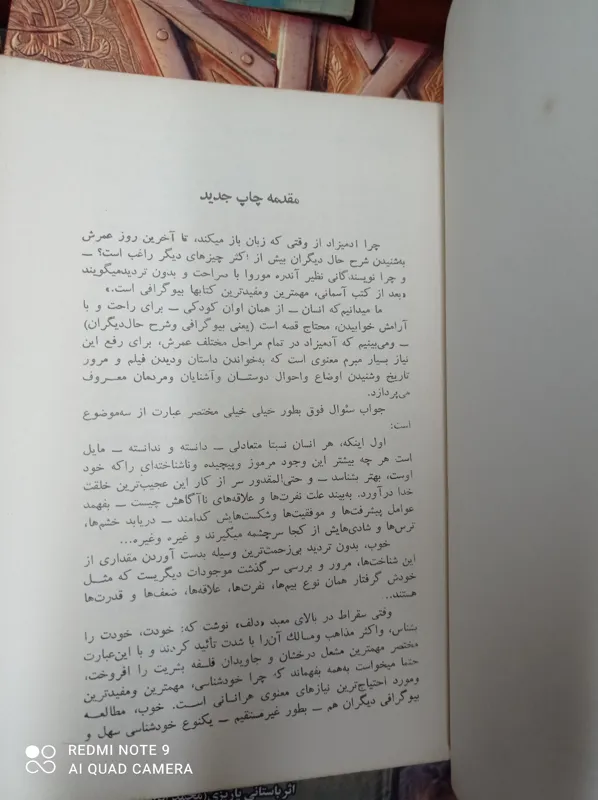 مقدمه چاپ جدید
چرا آدمیزاد از وقتی که زبان باز میکند، تا آخرین روز عمرش
به‌شنیدن شرح حال دیگران بیش از اکثر چیزهای دیگر راغب است؟ ــ
و چرا نویسندگانی نظیر آندره موروا با صراحت و بدون تردیدمیگویند
«بعد از کتب آسمانی، مهمترین ومفیدترین کتابها بیوگرافی است.»
ما میدانیم‌که انسان ــ از همان اوان کودکی ــ برای راحت و با
آرامش خوابیدن، محتاج قصه است (یعنی بیوگرافی وشرح حال‌دیگران)
ــ ومی‌بینیم که آدمیزاد در تمام مراحل مختلف عمرش، برای رفع این
نیاز بسیار مبرم معنوی است که به‌خواندن داستان ودیدن فیلم و مرور
تاریخ وشنیدن اوضاع واحوال دوستان وآشنایان ومردمان معروف
می‌پردازد.
جواب سئوال فوق بطور خیلی خیلی مختصر عبارت از سه‌موضوع
است:
اول اینکه، هر انسان نسبتا متعادلی ــ دانسته و ندانسته ــ مایل
است هر چه بیشتر این وجود مرموز وپیچیده وناشناخته‌ای راکه خود
اوست، بهتر بشناسد ــ و حتی‌المقدور سر از کار این عجیب‌ترین خلقت
خدا درآورد. به‌بیند علت نفرت‌ها و علاقه‌های ناآگاهش چیست ــ بفهمد
عوامل پیشرفت‌ها و موفقیت‌ها وشکست‌هایش کدامند ــ دریابد خشم‌ها،
ترس‌ها و شادی‌هایش از کجا سرچشمه میگیرند و غیره وغیره...
خوب، بدون تردید بی‌زحمت‌ترین وسیله بدست آوردن مقداری از
این شناخت‌ها، مرور و بررسی سرگذشت موجودات دیگریست که مثل
خودش گرفتار همان نوع بیم‌ها، نفرت‌ها، علاقه‌ها، ضعف‌ها و قدرت‌ها
هستند..
وقتی سقراط در بالای معبد «دلف» نوشت که: خودت، خودت را
بشناس، واکثر مذاهب ومسالک آن‌را با شدت تأئید کردند و با این‌عبارت
مختصر مهمترین مشعل درخشان و جاویدان فلسفه بشریت را افروخت،
حتما میخواست به‌همه بفهماند که چرا خودشناسی، مهمترین ومفیدترین
ومورد احتیاج‌ترین نیازهای معنوی هرانسانی است. خوب، مطالعه
بیوگرافی دیگران هم ــ بطور غیرمستقیم ــ یکنوع خودشناسی سهل و
REDMI NOTE 9
AI QUAD CAMERA